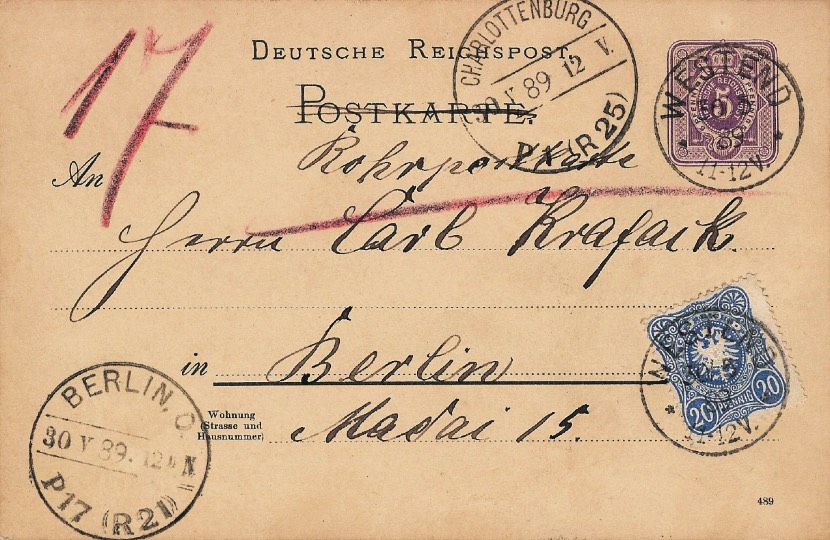 17
DEUTSCHE REICHSPOST
POSTKARTE.
Rohrpostkarte
CHARLOTTENBURG
30 V 89 12 V.
P1 (R 25)
5
WESTEND
89
11-12V.
An
Herrn Carl Krafack.
in Berlin
Wohnung
(Strasse und
Hausnummer)
Madai 15.
WESTEND
11-12V.
20 PFENNIG 20
BERLIN, O.
30 V 89. 12 N
P17 (R21)
489